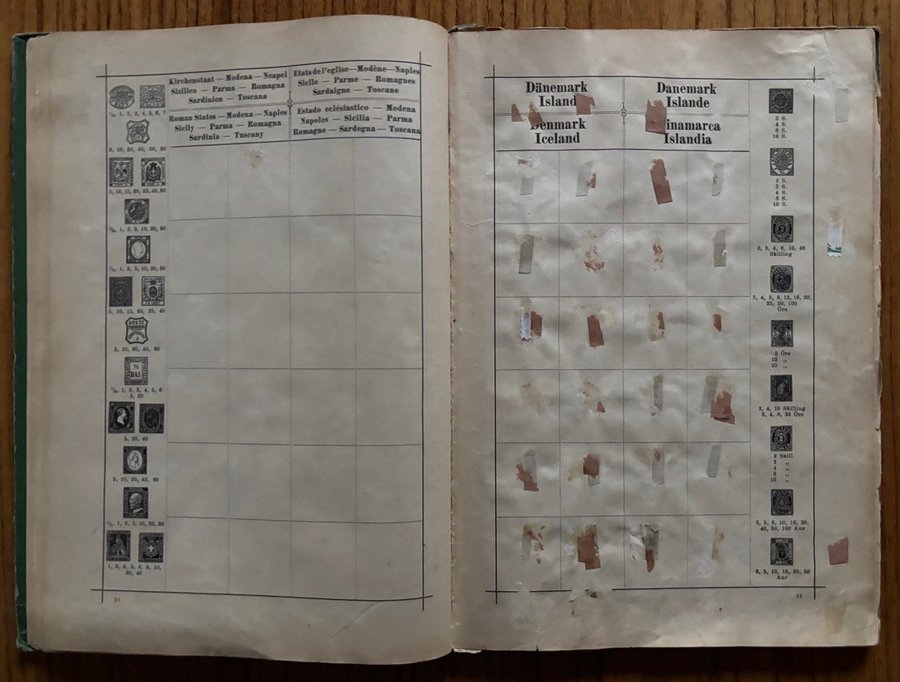 Kirchenstaat — Modena — Neapel
Sizilien — Parma — Romagna
Sardinien — Toscana
Etats de l'eglise — Modène — Naples
Sicile — Parme — Romagnes
Sardaigne — Toscane
Roman States — Modena — Naples
Sicily — Parma — Romagna
Sardinia — Tuscany
Estado eclésiastico — Modena
Napoles — Sicilia — Parma
Romagne — Sardegna — Toscana
5, 10, 15, 20, 25, 40, 80
5, 10, 15, 20, 25, 40
5, 20, 40
Dänemark
Island
Danemark
Islande
Denmark
Iceland
Islandia
2 S.
4 S.
8 S.
16 S.
2 S.
3 S.
4 S.
8 S.
16 S.
2, 3, 4, 8, 16, 48
Skilling
3, 4, 5, 8, 12, 16, 20,
25, 50, 100
Öre
5 Öre
10 „
20 „
2, 4, 16 Skilling
3, 4, 8, 32 Öre
2 Skill.
3 „
4 „
8 „
16 „
3, 5, 6, 10, 16, 20,
40, 50, 100 Aur
3, 5, 10, 16, 20, 50
Aur